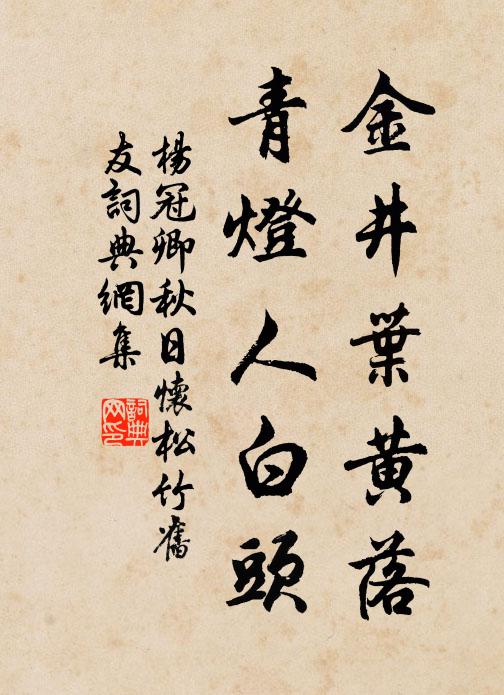 金井葉黃落
青燈人白頭
楊冠卿秋日懷松竹舊
友詞典網集
詞典
网印